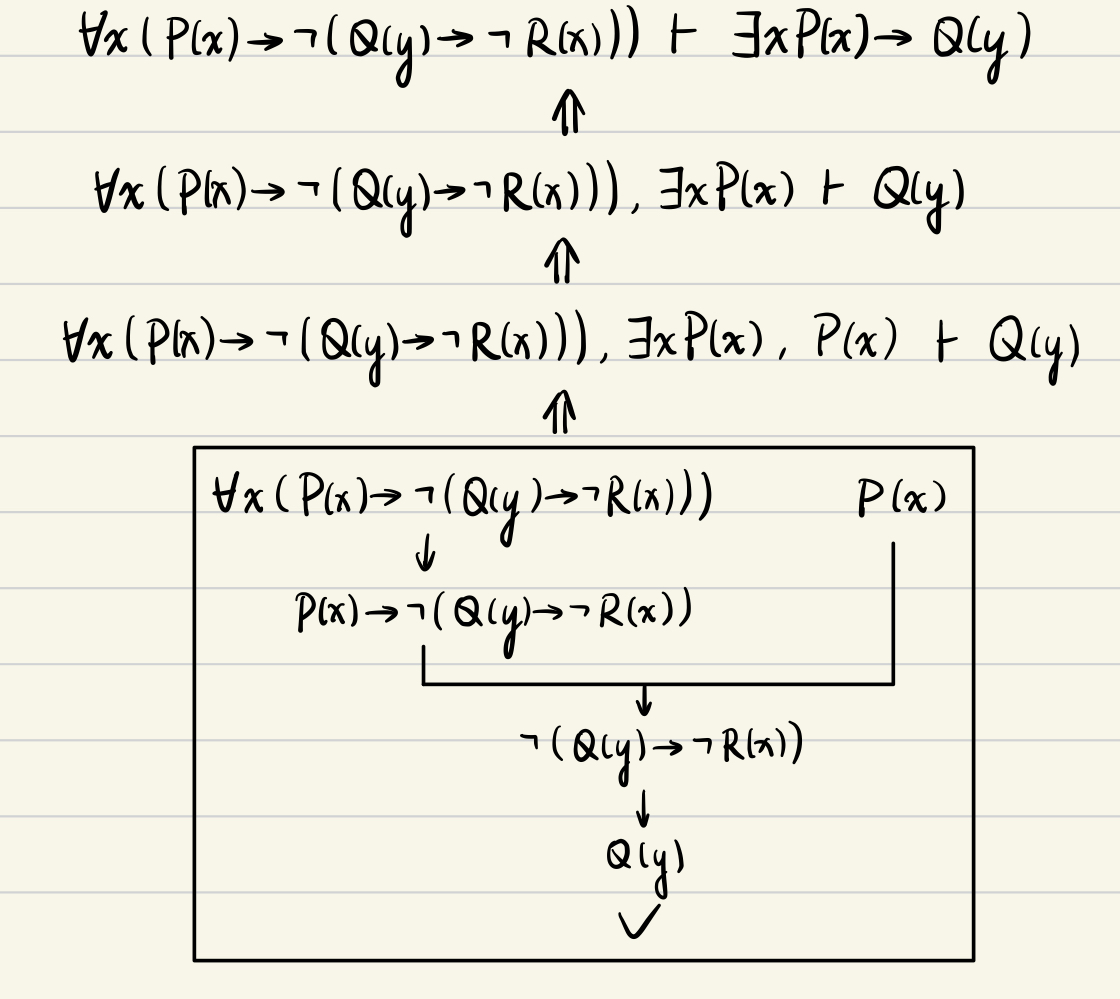 ∀x(P(x)→¬(Q(y)→¬R(x))) ⊢ ∃xP(x)→Q(y)
⇑
∀x(P(x)→¬(Q(y)→¬R(x))), ∃xP(x) ⊢ Q(y)
⇑
∀x(P(x)→¬(Q(y)→¬R(x))), ∃xP(x), P(x) ⊢ Q(y)
⇑
∀x(P(x)→¬(Q(y)→¬R(x))) P(x)
↓
P(x)→¬(Q(y)→¬R(x))
↓
¬(Q(y)→¬R(x))
↓
Q(y)
✓